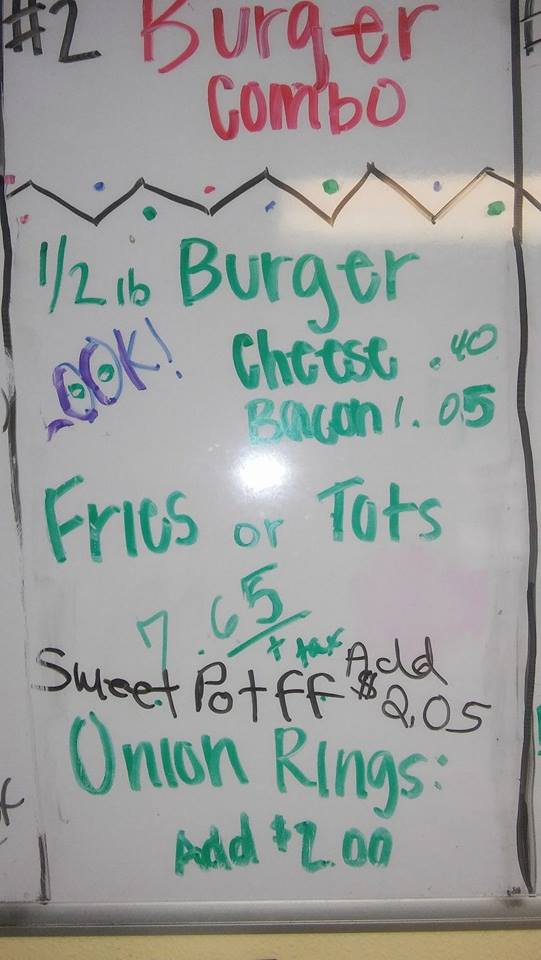 #2 Burger
Combo
1/2 lb Burger
LOOK!
Cheese .40
Bacon 1.05
Fries or Tots
7.65
+ tax
Sweet Pot FF Add $2.05
Onion Rings:
Add $2.00